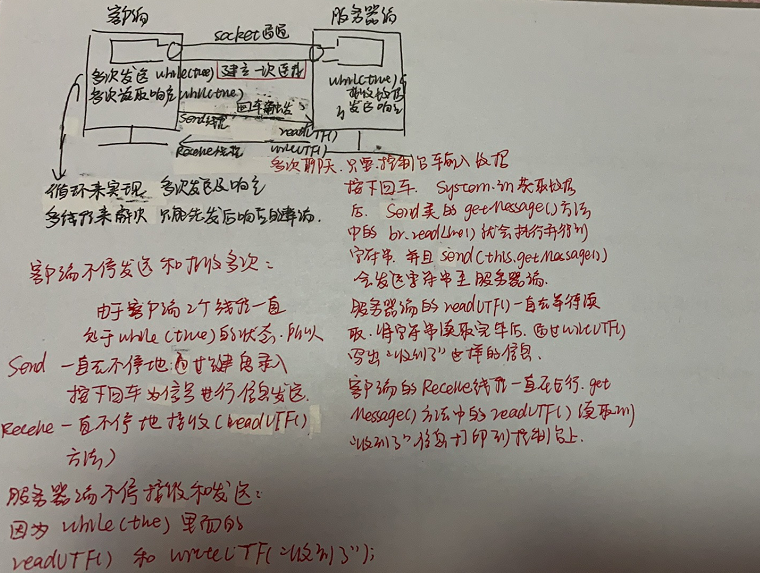 客户端
服务器端
socket通道
多次发送 while(true)
建立一次连接
多次读取响应 while(true)
while(true)
接收数据
发送响应
回车触发
Send线程
readUTF()
Receive线程
writeUTF()
循环来实现 多次发送及响应
多线程来解决 只能先发后响应的弊端.
多次聊天.只要控制台车输入数据
按下回车. System.in获取数据
后. Send类的getMessage()方法
中的br.readLine()就会执行并得到
字符串.并且send(this.getMessage())
会发送字符串至服务器端.
服务器端的readUTF()一直在等待读
取.将字符串读取完毕后.通过writeUTF()
写出"收到了"这样的信息.
客户端的Receive线程一直在运行.get
Message()方法中的readUTF()读取到
"收到了"信息打印到控制台上.
客户端不停发送和接收多次:
由于客户端2个线程一直
处于while(true)的状态.所以
Send 一直在不停地 通过键盘录入
按下回车为信号进行信息发送.
Receive 一直不停地接收(readUTF()
方法)
服务器端不停接收和发送:
因为while(true)里面的
readUTF() 和 writeUTF("收到了");